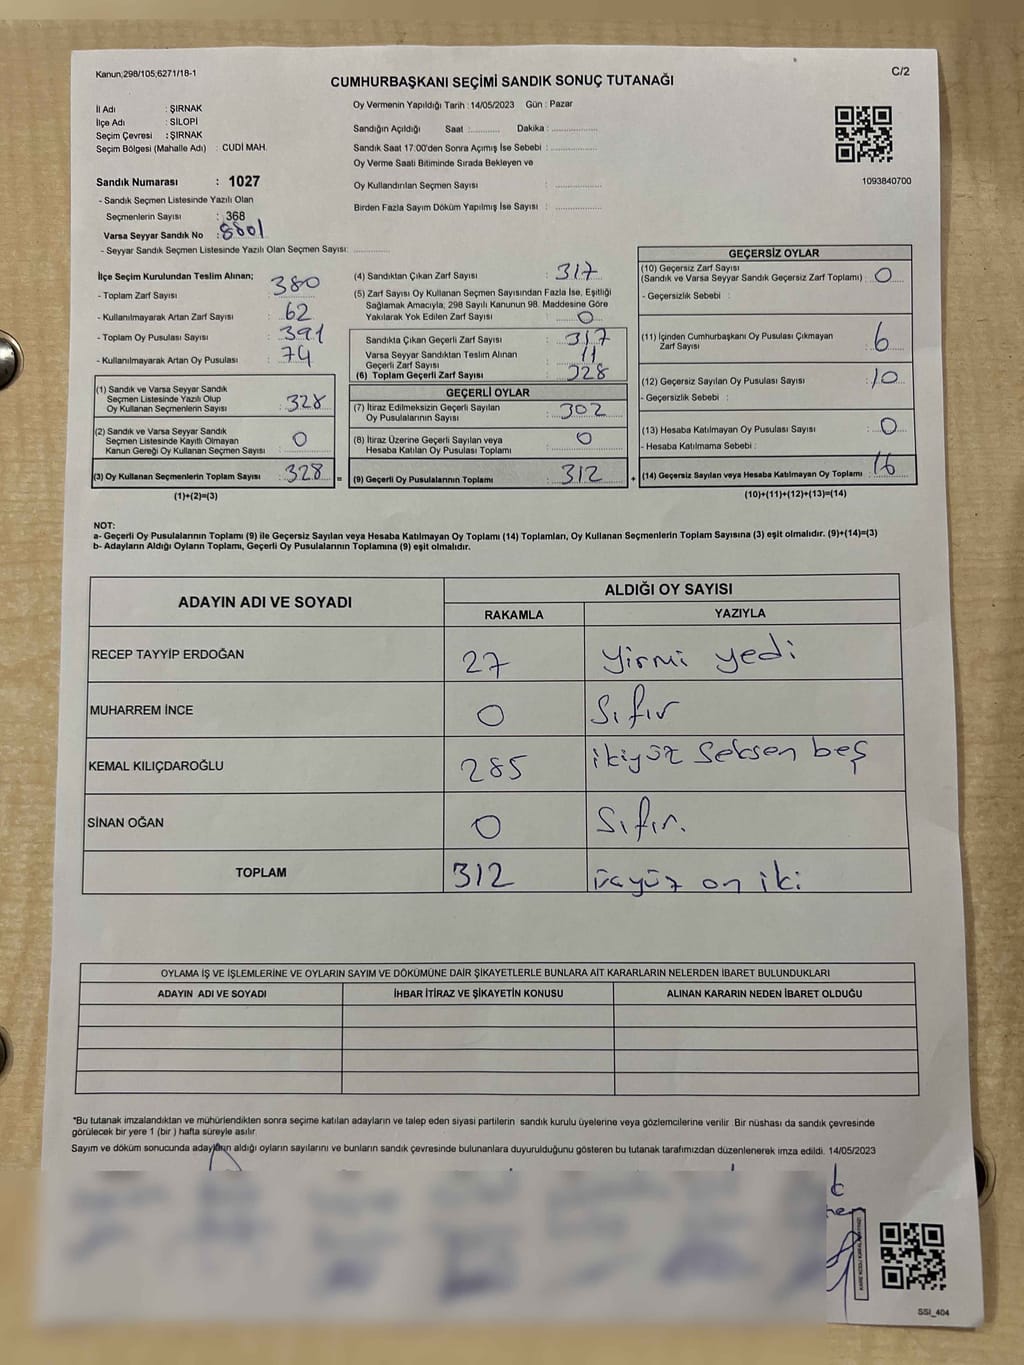 Kanun;298/105,6271/18-1
C/2
CUMHURBAŞKANI SEÇİMİ SANDIK SONUÇ TUTANAĞI
İl Adı : ŞIRNAK
İlçe Adı : SİLOPİ
Seçim Çevresi : ŞIRNAK
Seçim Bölgesi (Mahalle Adı) : CUDİ MAH.
Sandık Numarası : 1027
- Sandık Seçmen Listesinde Yazılı Olan
Seçmenlerin Sayısı : 368
Varsa Seyyar Sandık No : 8801
- Seyyar Sandık Seçmen Listesinde Yazılı Olan Seçmen Sayısı: ............
Oy Vermenin Yapıldığı Tarih : 14/05/2023 Gün : Pazar
Sandığın Açıldığı Saat :.......... Dakika : ................
Sandık Saat 17:00'den Sonra Açımış İse Sebebi : ................
Oy Verme Saati Bitiminde Sırada Bekleyen ve
Oy Kullandırılan Seçmen Sayısı : ................
Birden Fazla Sayım Döküm Yapılmış İse Sayısı : ................
1093840700
İlçe Seçim Kurulundan Teslim Alınan;
- Toplam Zarf Sayısı : 380
- Kullanılmayarak Artan Zarf Sayısı : 62
- Toplam Oy Pusulası Sayısı : 391
- Kullanılmayarak Artan Oy Pusulası : 74
(1) Sandık ve Varsa Seyyar Sandık
Seçmen Listesinde Yazılı Olup
Oy Kullanan Seçmenlerin Sayısı : 328
(2) Sandık ve Varsa Seyyar Sandık
Seçmen Listesinde Kayıtlı Olmayan
Kanun Gereği Oy Kullanan Seçmen Sayısı : 0
(3) Oy Kullanan Seçmenlerin Toplam Sayısı : 328
(1)+(2)=(3)
(4) Sandıktan Çıkan Zarf Sayısı : 317
(5) Zarf Sayısı Oy Kullanan Seçmen Sayısından Fazla İse, Eşitliği
Sağlamak Amacıyla; 298 Sayılı Kanunun 98. Maddesine Göre
Yakılarak Yok Edilen Zarf Sayısı : 0
Sandıkta Çıkan Geçerli Zarf Sayısı : 317
Varsa Seyyar Sandıktan Teslim Alınan
Geçerli Zarf Sayısı : 11
(6) Toplam Geçerli Zarf Sayısı : 328
GEÇERLİ OYLAR
(7) İtiraz Edilmeksizin Geçerli Sayılan
Oy Pusulalarının Sayısı : 302
(8) İtiraz Üzerine Geçerli Sayılan veya
Hesaba Katılan Oy Pusulası Toplamı : 0
= (9) Geçerli Oy Pusulalarının Toplamı : 312 +
GEÇERSİZ OYLAR
(10) Geçersiz Zarf Sayısı
(Sandık ve Varsa Seyyar Sandık Geçersiz Zarf Toplamı) : 0
- Geçersizlik Sebebi :
(11) İçinden Cumhurbaşkanı Oy Pusulası Çıkmayan
Zarf Sayısı : 6
(12) Geçersiz Sayılan Oy Pusulası Sayısı : 10
- Geçersizlik Sebebi :
(13) Hesaba Katılmayan Oy Pusulası Sayısı : 0
- Hesaba Katılmama Sebebi :
(14) Geçersiz Sayılan veya Hesaba Katılmayan Oy Toplamı : 16
(10)+(11)+(12)+(13)=(14)
NOT:
a- Geçerli Oy Pusulalarının Toplamı (9) ile Geçersiz Sayılan veya Hesaba Katılmayan Oy Toplamı (14) Toplamları, Oy Kullanan Seçmenlerin Toplam Sayısına (3) eşit olmalıdır. (9)+(14)=(3)
b- Adayların Aldığı Oyların Toplamı, Geçerli Oy Pusulalarının Toplamına (9) eşit olmalıdır.
ADAYIN ADI VE SOYADI
ALDIĞI OY SAYISI
RAKAMLA YAZIYLA
RECEP TAYYİP ERDOĞAN 27 yirmi yedi
MUHARREM İNCE 0 Sıfır
KEMAL KILIÇDAROĞLU 285 ikiyüz Seksen beş
SİNAN OĞAN 0 Sıfır.
TOPLAM 312 üçyüz on iki
OYLAMA İŞ VE İŞLEMLERİNE VE OYLARIN SAYIM VE DÖKÜMÜNE DAİR ŞİKAYETLERLE BUNLARA AİT KARARLARIN NELERDEN İBARET BULUNDUKLARI
ADAYIN ADI VE SOYADI İHBAR İTİRAZ VE ŞİKAYETİN KONUSU ALINAN KARARIN NEDEN İBARET OLDUĞU
*Bu tutanak imzalandıktan ve mühürlendikten sonra seçime katılan adayların ve talep eden siyasi partilerin sandık kurulu üyelerine veya gözlemcilerine verilir .Bir nüshası da sandık çevresinde
görülecek bir yere 1 (bir ) hafta süreyle asılır.
Sayım ve döküm sonucunda adayların aldığı oyların sayılarını ve bunların sandık çevresinde bulunanlara duyurulduğunu gösteren bu tutanak tarafımızdan düzenlenerek imza edildi. 14/05/2023
SSI_404